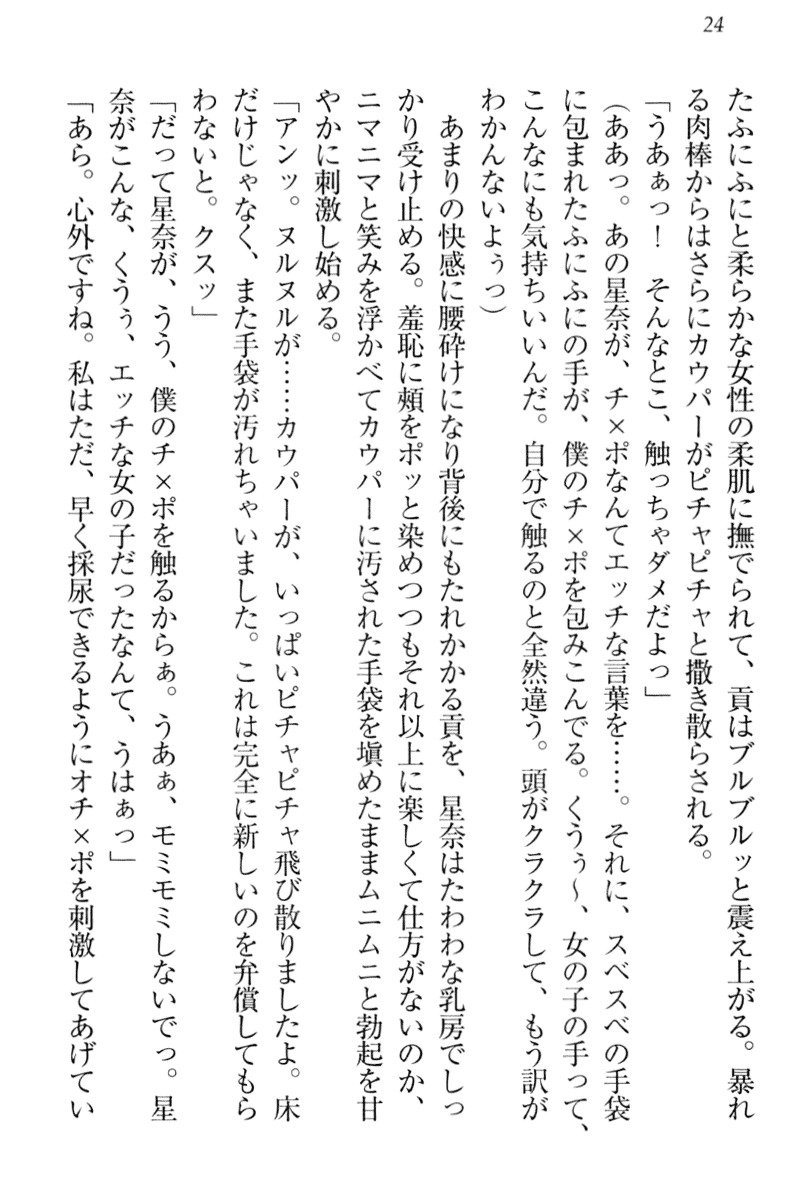 24
たふにふにと柔らかな女性の柔肌に撫でられて、貢はブルブルッと震え上がる。暴れ
る肉棒からはさらにカウパーがピチャピチャと撒き散らされる。
「うあぁっ！　そんなとこ、触っちゃダメだよっ」
（ああっ。あの星奈が、チ×ポなんてエッチな言葉を……。それに、スベスベの手袋
に包まれたふにふにの手が、僕のチ×ポを包みこんでる。くうぅ〜、女の子の手って、
こんなにも気持ちいいんだ。自分で触るのと全然違う。頭がクラクラして、もう訳が
わかんないよぅっ）
　あまりの快感に腰砕けになり背後にもたれかかる貢を、星奈はたわわな乳房でしっ
かり受け止める。羞恥に頬をポッと染めつつもそれ以上に楽しくて仕方がないのか、
ニマニマと笑みを浮かべてカウパーに汚された手袋を填めたままムニムニと勃起を甘
やかに刺激し始める。
「アンッ。ヌルヌルが……カウパーが、いっぱいピチャピチャ飛び散りましたよ。床
だけじゃなく、また手袋が汚れちゃいました。これは完全に新しいのを弁償してもら
わないと。クスッ」
「だって星奈が、うう、僕のチ×ポを触るからぁ。うあぁ、モミモミしないでっ。星
奈がこんな、くうぅ、エッチな女の子だったなんて、うはぁっ」
「あら。心外ですね。私はただ、早く採尿できるようにオチ×ポを刺激してあげてい